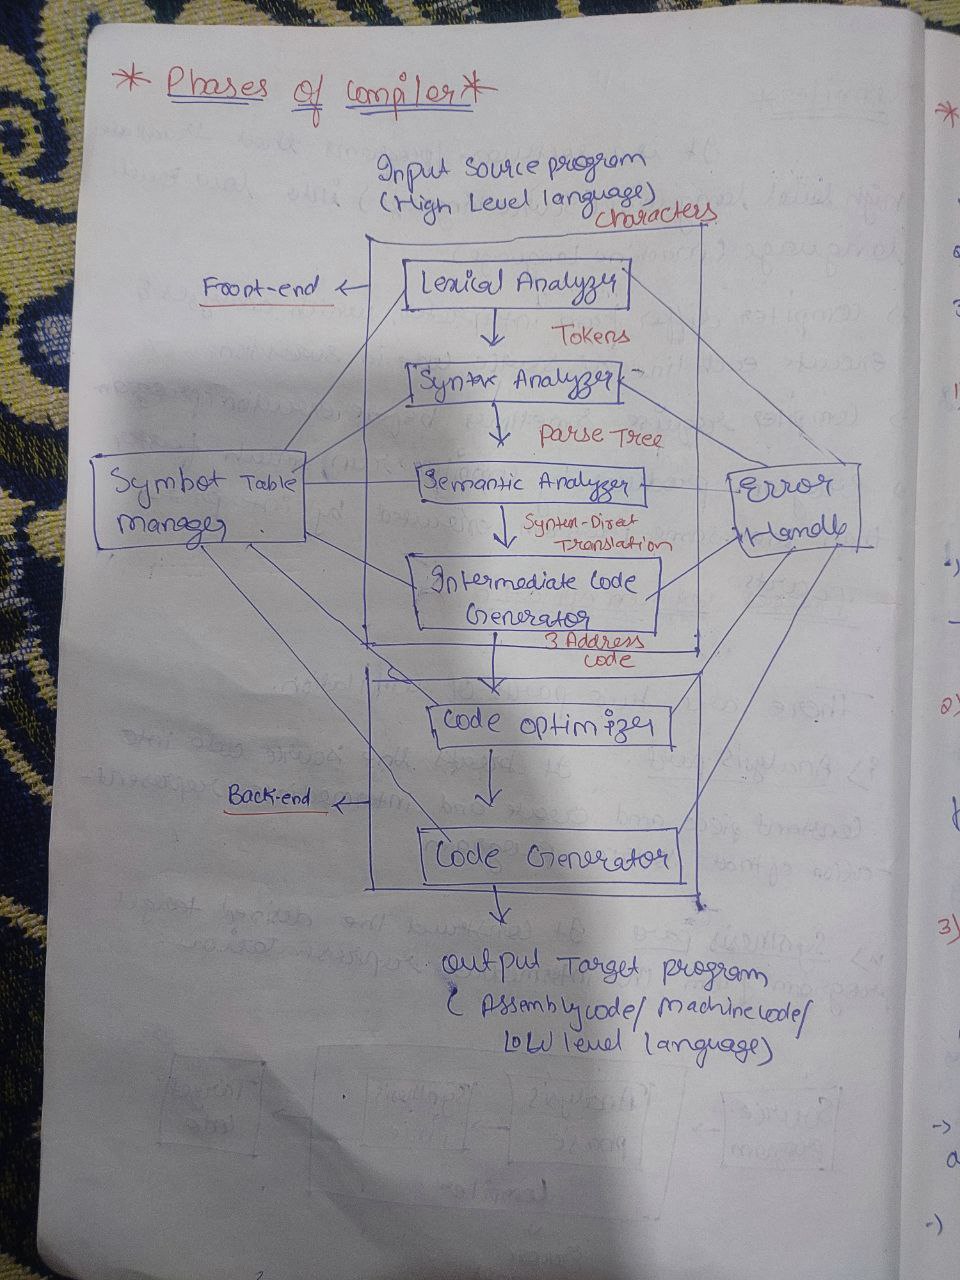 * Phases of Compiler *
Input Source program
(High Level language)
Characters
Front-end
Lexical Analyzer
Tokens
Syntax Analyzer
Parse Tree
Symbol Table
Manager
Semantic Analyzer
Error
Handle
Syntax-Direct
Translation
Intermediate Code
Generator
3 Address
Code
Code Optimizer
Back-end
Code Generator
Output Target program
( Assembly code/ Machine code/
Low level language)
*
2)
3)